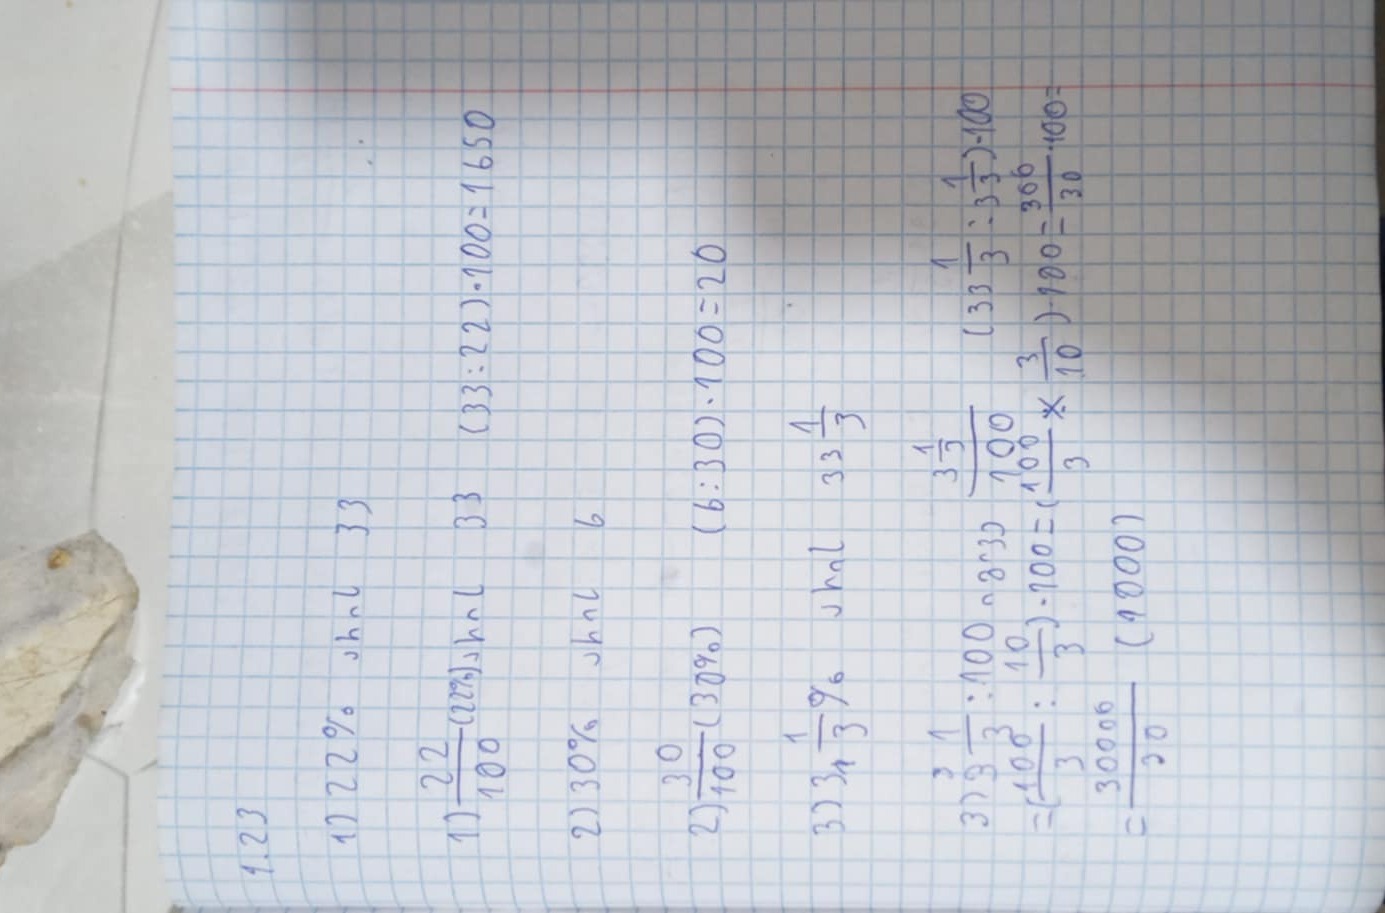 1.23
1) 22% שהם 33
1) 22/100 (22%) שהם 33 (33:22)·100=1650
2) 30% שהם 6
2) 30/100 (30%) (6:30)·100=20
3) 3 1/3 % שהם 33 1/3
3) 3 1/3 :100 3 1/3 / 100 (33 1/3 : 3 1/3)·100
=(100/3 : 10/3)·100=(100/3 × 3/10)·100= 300/30 ·100=
= 30000/30 (1000)